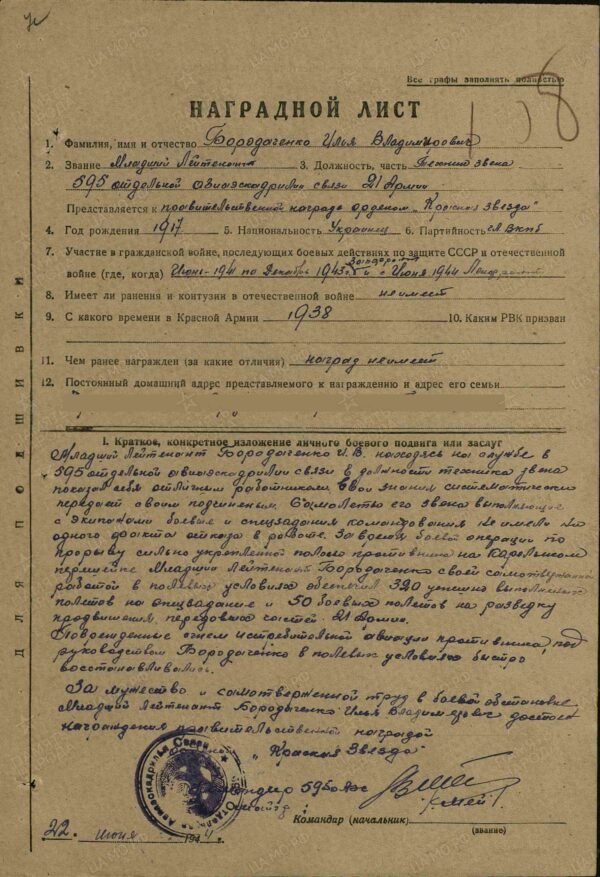 Все графы заполнять полностью
НАГРАДНОЙ ЛИСТ
1. Фамилия, имя и отчество Бородаченко Илья Владимирович
2. Звание Младший Лейтенант 3. Должность, часть Техник звена
595 отдельной авиаэскадрилии связи 21 Армии
Представляется к правительственной награде орденом „Красная звезда"
4. Год рождения 1917 5. Национальность Украинец 6. Партийность чл ВКПб
7. Участие в гражданской войне, последующих боевых действиях по защите СССР и отечественной
войне (где, когда) Июнь-1941 по Декабрь 1943г. и с Июня 1944
8. Имеет ли ранения и контузии в отечественной войне неимеет
9. С какого времени в Красной Армии 1938 10. Каким РВК призван
11. Чем ранее награжден (за какие отличия) наград неимеет
12. Постоянный домашний адрес представляемого к награждению и адрес его семьи
I. Краткое, конкретное изложение личного боевого подвига или заслуг
Младший Лейтенант Бородаченко И.В. находясь на службе в
595 отдельной авиаэскадрилии связи в должности техника звена
показал себя отличным работником. Свои знания систематически
передает своим подчиненым. Самолеты его звена выполняющие
с экипажами боевые и спецзадания командования не имели ни
одного факта отказа в работе. За время боевой операции по
прорыву сильно укрепленной полосы противника на Карельском
перешейке Младший Лейтенант Бородаченко своей самоотверженной
работой в полевых условиях обеспечил 320 успешно выполненых
полетов на спецзадание и 50 боевых полетов на разведку
продвижения передовых частей 21 Армии.
Поврежденные огнем истребительной авиации противника под
руководством Бородаченко в полевых условиях быстро
восстанавливались.
За мужество и самоотверженной труд в боевой обстановке
Младший Лейтенант Бородаченко Илья Владимирович достоен
награждения правительственной наградой
„Красная Звезда"
Командир 595 оаэс
Командир (начальник)
(звание)
22 июня 1944
ДЛЯ ПОДШИВКИ